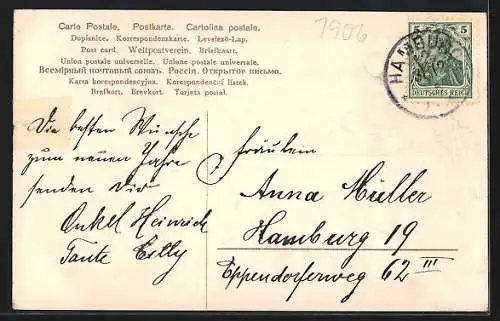 Carte Postale. Postkarte. Cartolina postale.
Dopisnice. Korrespondenzkarte. Levelező-Lap.
Post card. Weltpostverein. Briefkaart.
Union postale universelle. Unione postale universale.
Всемірный почтовый союзъ. Россія. Открытое письмо.
Karta korespondencyjna. Korespondenční lístek.
Brefkort. Brevkort. Tarjeta postal.
1906
5 5
DEUTSCHES REICH
HAMBURG
Die besten Wünsche
zum neuen Jahre
senden Dir
Onkel Heinrich
Tante
Fräulein
Anna Müller
Hamburg 19
Eppendorferweg 62 III